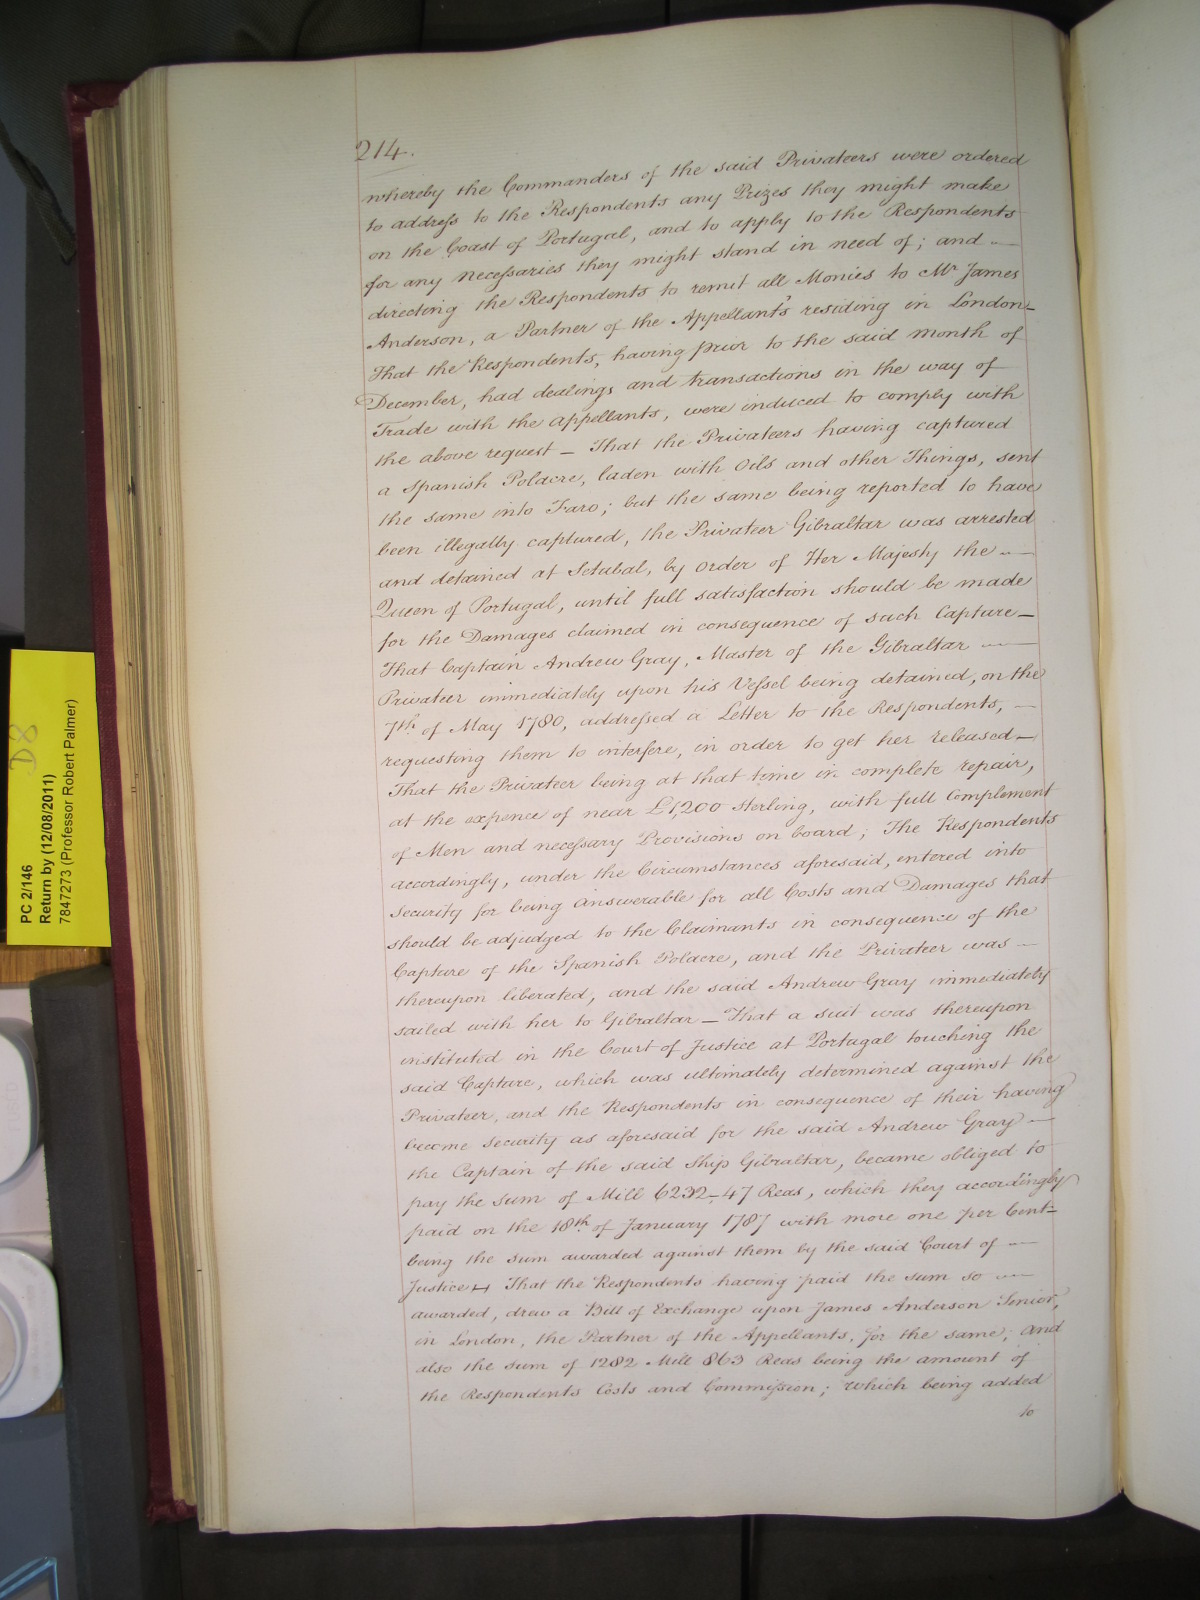 214.
whereby the Commanders of the said Privateers were ordered
to address to the Respondents any Prizes they might make
on the Coast of Portugal, and to apply to the Respondents
for any necessaries they might stand in need of; and —
directing the Respondents to remit all Monies to Mr James
Anderson, a Partner of the Appellants residing in London—
That the Respondents, having prior to the said month of
December, had dealings and transactions in the way of
Trade with the Appellants, were induced to comply with
the above request — That the Privateers having captured
a Spanish Polacre, laden with Oils and other Things, sent
the same into Faro; but the same being reported to have
been illegally captured, the Privateer Gibraltar was arrested
and detained at Setubal, by order of Her Majesty the —
Queen of Portugal, until full satisfaction should be made
for the Damages claimed in consequence of such Capture—
That Captain Andrew Gray, Master of the Gibraltar —
Privateer immediately upon his Vessel being detained, on the
7th of May 1780, addressed a Letter to the Respondents, —
requesting them to interfere, in order to get her released—
That the Privateer being at that time in complete repair,
at the expence of near £1,200 Sterling, with full Complement
of Men and necessary Provisions on board; The Respondents
accordingly, under the Circumstances aforesaid, entered into
security for being answerable for all Costs and Damages that
should be adjudged to the Claimants in consequence of the
Capture of the Spanish Polacre, and the Privateer was —
thereupon liberated, and the said Andrew Gray immediately
sailed with her to Gibraltar — That a suit was thereupon
instituted in the Court of Justice at Portugal touching the
said Capture, which was ultimately determined against the
Privateer, and the Respondents in consequence of their having
become security as aforesaid for the said Andrew Gray —
the Captain of the said Ship Gibraltar, became obliged to
pay the sum of Mill 6232-47 Reas, which they accordingly
paid on the 18th of January 1787 with more one per Cent=
being the sum awarded against them by the said Court of —
Justice — That the Respondents having paid the sum so —
awarded, drew a Bill of Exchange upon James Anderson Senior,
in London, the Partner of the Appellants, for the same; and
also the sum of 1282 Mill 863 Reas being the amount of
the Respondents Costs and Commission; which being added
to
D8
PC 2/146
Return by (12/08/2011)
7847273 (Professor Robert Palmer)